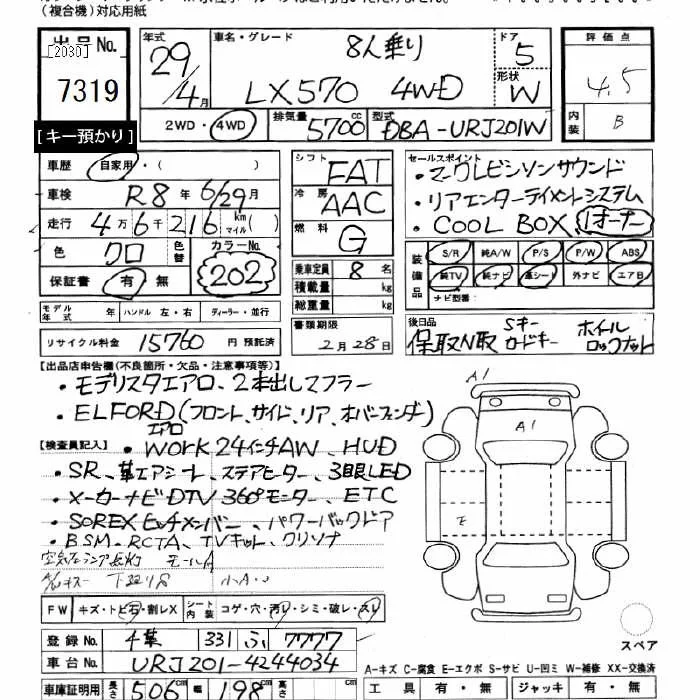 (複合機)対応用紙
出品No.
[2030]
7319
[キー預かり]
年式 29/4月
車名・グレード 8人乗り
LX570 4WD
ドア 5
形状 W
評価点 4.5
内装 B
2WD・4WD
排気量 5700cc
型式 DBA-URJ201W
車歴 自家用・( )
車検 R8年6/29月
走行 4万6千216 km マイル( )
色 クロ 色替 カラーNo. 202
保証書 有・無
モデル年式 年 ハンドル 左・右 ディーラー・並行
リサイクル料金 15760 円 預託済
シフト FAT
冷房 AAC
燃料 G
乗車定員 8名
積載量 kg
総重量 kg
書類期限
2月28日
セールスポイント
・マークレビンソンサウンド
・リアエンターテイメントシステム
・COOL BOX 1オーナー
装備品 S/R 純A/W P/S P/W ABS
純TV 純ナビ 革シート 外ナビ エアB
ナビ型番:
後日品 保取N取 Sキー カードキー ホイールロックナット
【出品店申告欄(不良箇所・欠品・注意事項等)】
・モデリスタエアロ、2本出しマフラー
・ELFORD(フロント、サイド、リア、オーバーフェンダー)
エアロ
【検査員記入】・WORK24インチAW、HUD
・SR、革エアシート、ステアヒーター、3眼LED
・メーカーナビDTV 360°モニター、ETC
・SOREXヒッチメンバー、パワーバックドア
・BSM、RCTA、TVキット、クリソナ
空気圧ランプ点灯 モールA
下廻りS 小A・
FW キズ・トビ石・割レX シート内装 コゲ・穴・汚レ・シミ・破レ・スレ
登録No. 千葉 331 ふ 7777
車台No. URJ201-4244034
車庫証明用 長さ 506cm 幅 198cm
A1
A1
E
スペア
A-キズ C-腐食 E-エクボ S-サビ U-凹ミ W-補修 XX-交換済
工具 有・無 ジャッキ 有・無